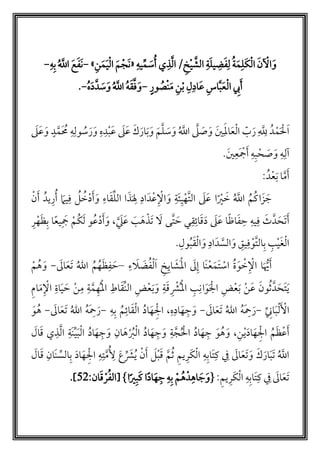 وَالْآنَ الْكَلِمَةُ لِفَضِيلَةِ الشَّيْخِ/ الَّذِي أُسَمِّيهِ «نَجْمَ الْيَمَنِ» -نَفَعَ اللهُ بِهِ-
أَبِي الْعَبَّاسِ عَادِلِ بْنِ مَنْصُورٍ -وَفَّقَهُ اللهُ وَسَدَّدَهُ-.
اَلْحَمْدُ لِلَّهِ رَبِّ الْعَالَمِينَ، وَصَلَّى اللهُ وَسَلَّمَ وَبَارَكَ عَلَى عَبْدِهِ وَرَسُولِهِ مُحَمَّدٍ وَعَلَى
آلِهِ وَصَحْبِهِ أَجْمَعِينَ.
أَمَّا بَعْدُ:
جَزَاكُمُ اللهُ خَيْرًا عَلَى التَّهْيِئَةِ وَالْإِعْدَادِ لِهَذَا اللِّقَاءِ، وَأَدْخُلُ فِيمَا أُرِيدُ أَنْ
أَتَحَدَّثَ فِيهِ حِفَاظًا عَلَى دَقَائِقِي حَتَّى لَا تَذْهَبَ عَلَيَّ، وَأَدْعُو لَكُمْ جَمِيعًا بِظَهْرِ
الْغَيْبِ بِالتَّوْفِيقِ وَالسَّدَادِ وَالْقَبُولِ.
أَيُّهَا الْإِخْوَةُ اسْتَمَعْنَا إِلَى الْمَشَايِخِ الْفُضَلَاءِ -حَفِظَهُمُ اللهُ تَعَالَى- وَهُمْ
يَتَحَدَّثُونَ عَنْ بَعْضِ الْجَوَانِبِ الْمُشْرِقَةِ وَبَعْضِ النِّقَاطِ الْمُهِمَّةِ مِنْ حَيَاةِ الْإِمَامِ
الْأَلْبَانِيِّ -رَحِمَهُ اللهُ تَعَالَى- وَجِهَادِهِ، الْجِهَادُ الْقَائِمُ بِهِ -رَحِمَهُ اللهُ تَعَالَى- وَهُوَ
أَعْظَمُ الْجِهَادَيْنِ، وَهُوَ جِهَادُ الْحُجَّةِ وَجِهَادُ الْبُرْهَانِ وَجِهَادُ الْبَيِّنَةِ الَّذِي قَالَ
اللهُ تَبَارَكَ وَتَعَالَى فِي كِتَابِهِ الْكَرِيمِ ثُمَّ قَبْلَ أَنْ يُشَرِّعَ لِأُمَّتِهِ الْجِهَادَ بِالسِّنَانِ قَالَ
تَعَالَى فِي كِتَابِهِ الْكَرِيمِ: {وَجَاهِدْهُمْ بِهِ جِهَادًا كَبِيرًا} [الْفُرْقَان:52].